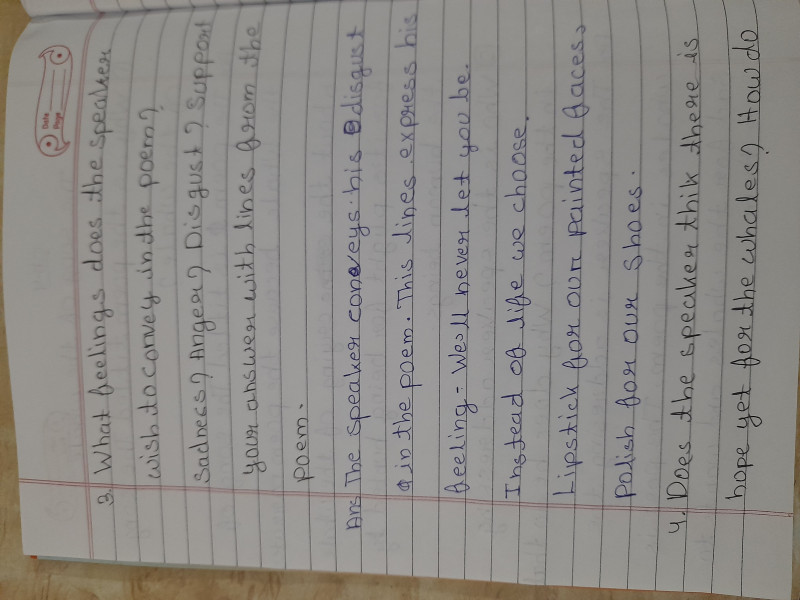 Date
Page
3. What feelings does the speaker
wish to convey in the poem?
Sadness? Anger? Disgust? Support
your answer with lines from the
poem.
Ans The speaker conveys his disgust
in the poem. This lines express his
feeling - We'll never let you be.
Instead of life we choose.
Lipstick for our painted faces,
Polish for our shoes.
4. Does the speaker thik there is
hope yet for the whales? How do